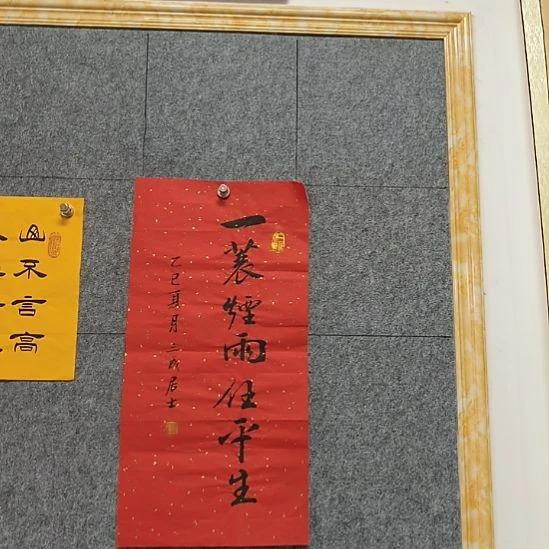 一蓑煙雨任平生
乙巳夏月 居士
山不言高